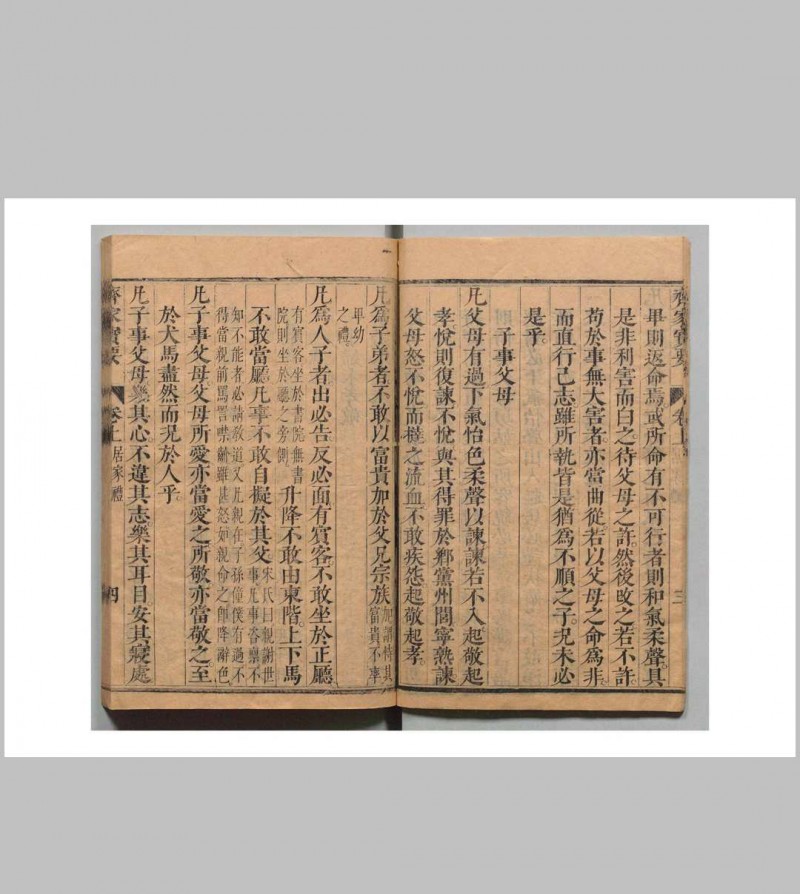 齊家寶要 卷上 三
畢則返命焉或所命有不可行者則和氣柔聲具
是非利害而白之待父母之許然後改之若不許
苟於事無大害者亦當曲從若以父母之命爲非
而直行己志雖所執皆是猶爲不順之子況未必
是乎
子事父母
凡父母有過下氣怡色柔聲以諫諫若不入起敬起
孝悅則復諫不悅與其得罪於鄉黨州閭寧熟諫
父母怒不悅而撻之流血不敢疾怨起敬起孝
凡爲子弟者不敢以富貴加於父兄宗族加謂恃其
富貴不率
卑幼
之禮
凡爲人子者出必告反必面有賓客不敢坐於正廳
有賓客坐於書院無書
院則坐於廳之旁側
升降不敢由東階上下馬
不敢當廳凡事不敢自擬於其父宋氏曰親謝世
事凡事咨稟不
知不能者必請教道又凡親在子孫僮僕有過不
得當親前罵詈嘶雖甚怒如親命之卽降辭色
凡子事父母父母所愛亦當愛之所敬亦當敬之至
於犬馬盡然而況於人乎
凡子事父母樂其心不違其志樂其耳目安其寢處
齊家寶要 卷上 居家禮 四